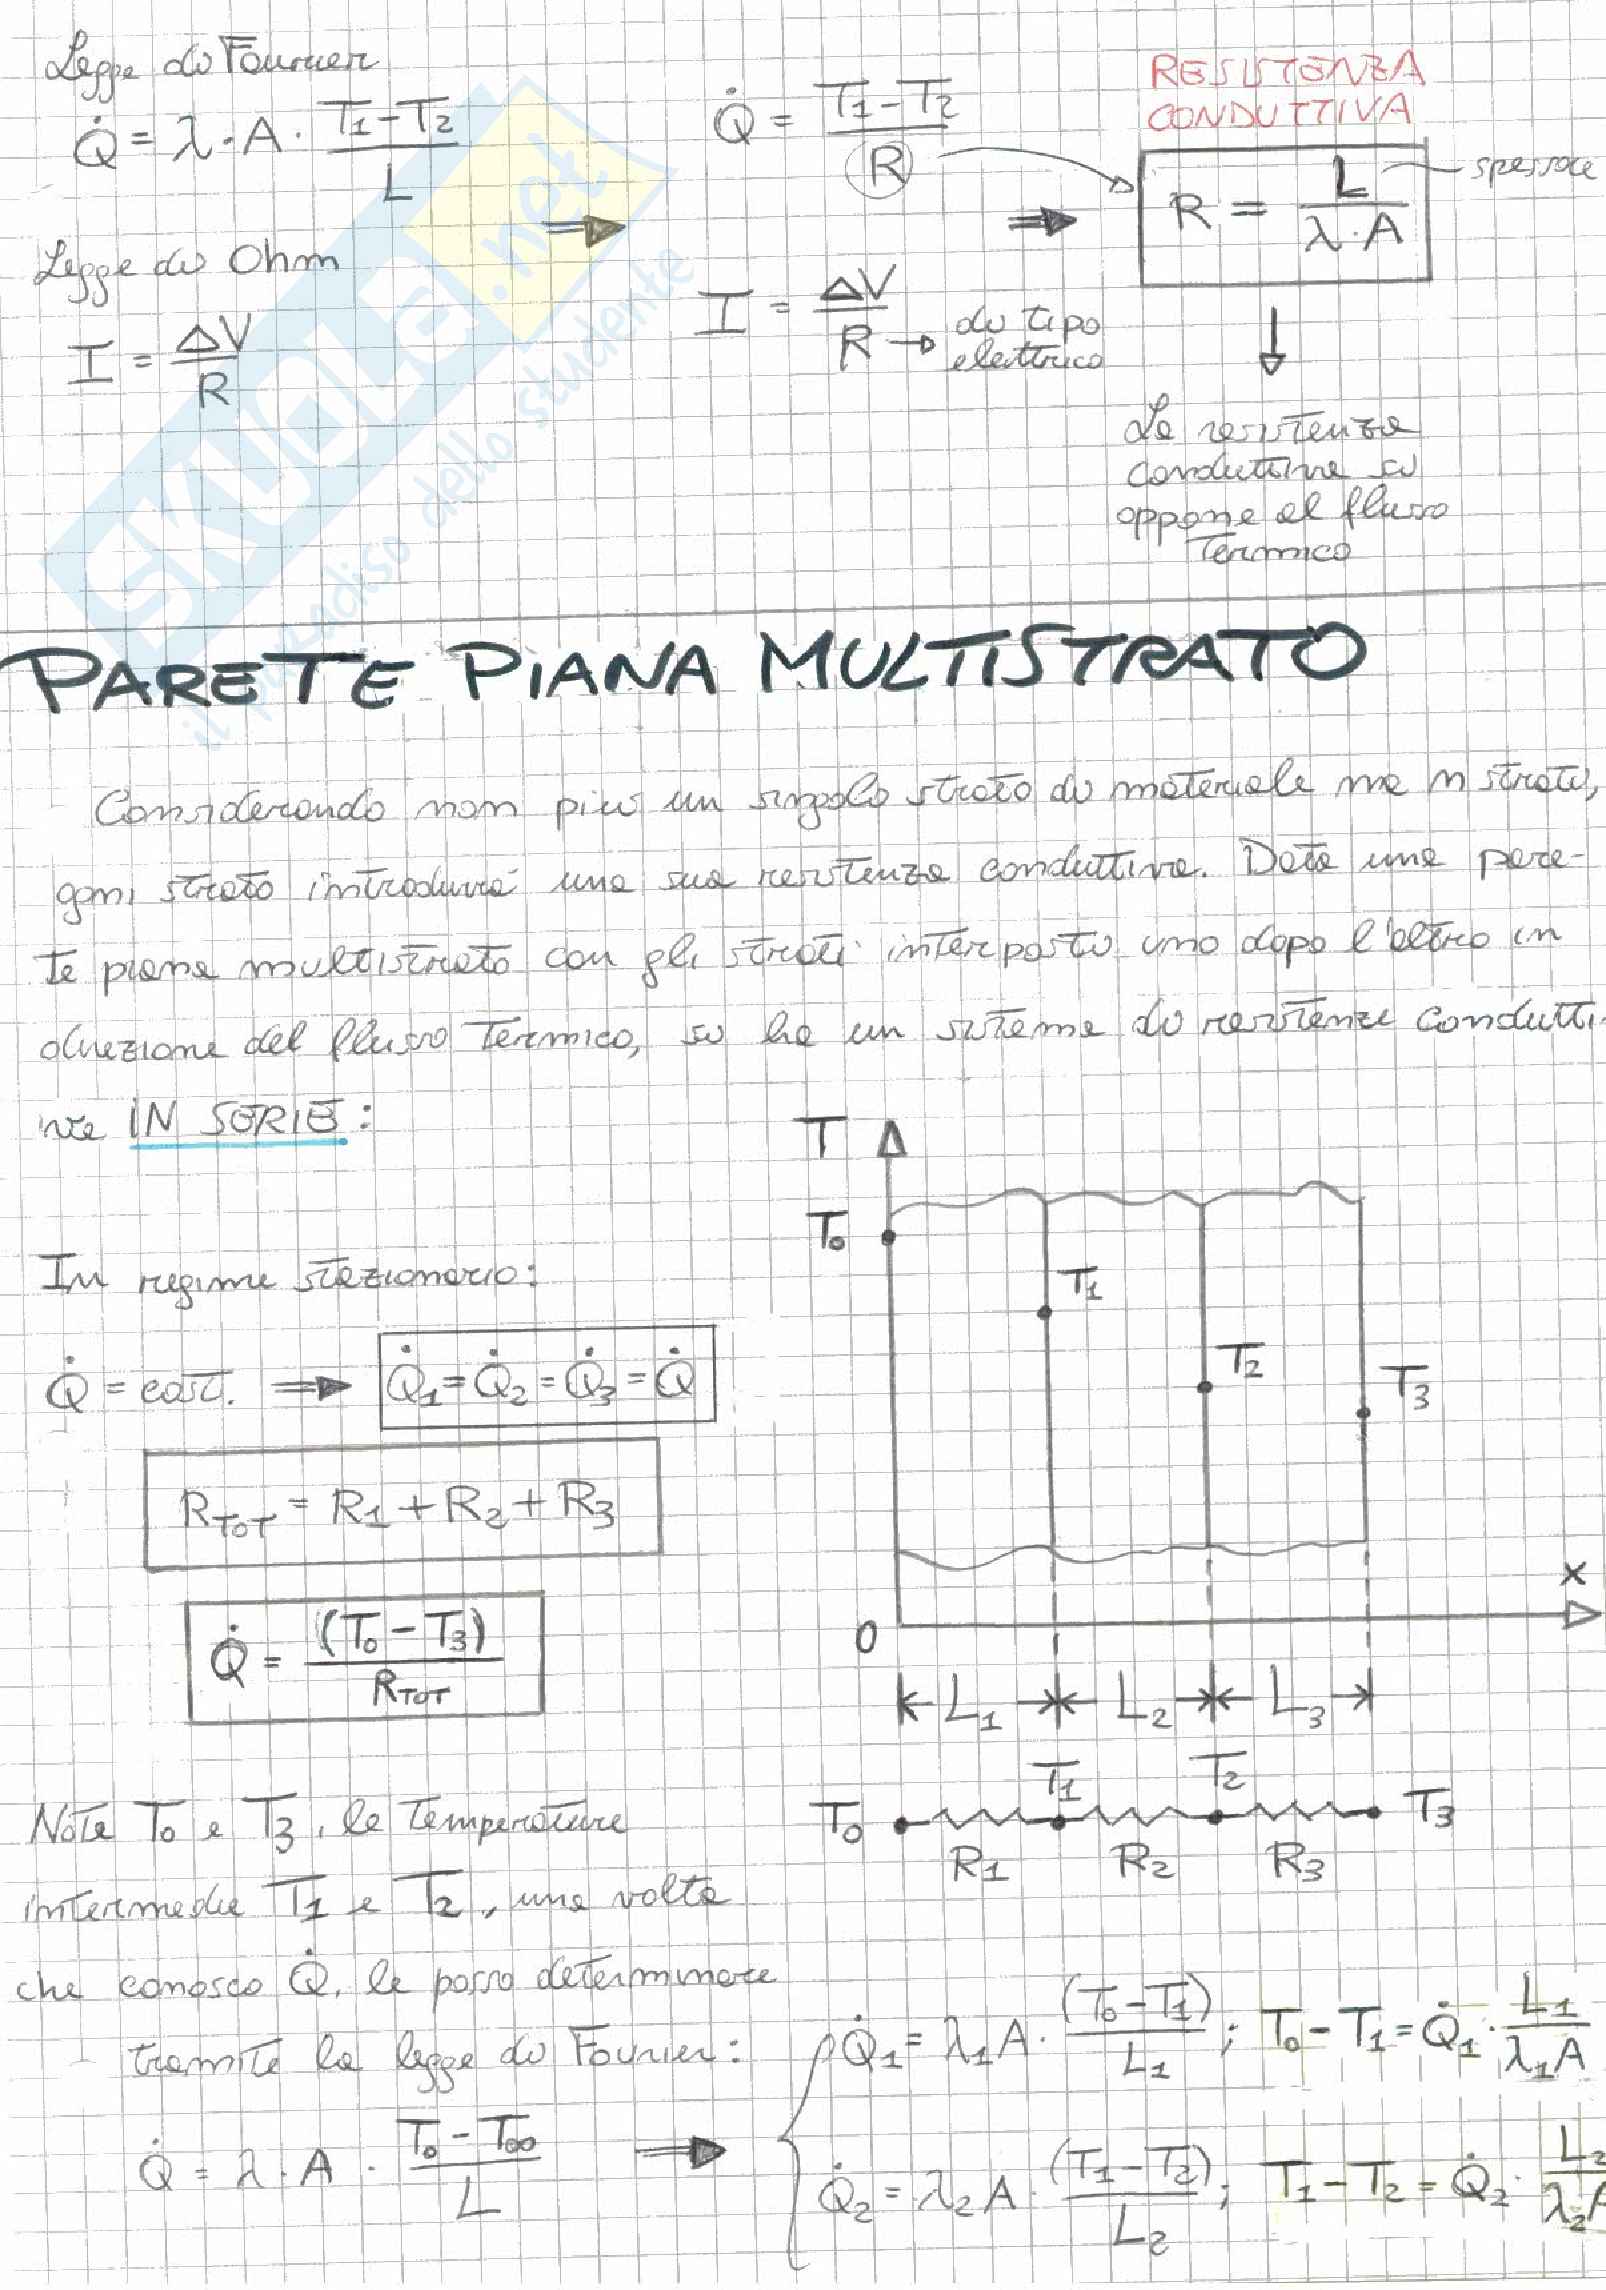 Legge di Fourier
Q̇ = λ·A· (T1-T2)/L
Legge di Ohm
I = ΔV/R
Q̇ = (T1-T2)/R
I = ΔV/R → di tipo
elettrico
RESISTENZA
CONDUTTIVA
R = L/(λ·A)
spessore
La resistenza
conduttiva si
oppone al flusso
termico
SKUOLA.net
il paradiso dello studente
PARETE PIANA MULTISTRATO
Considerando non più un singolo strato di materiale ma n strati,
ogni strato introdurrà una sua resistenza conduttiva. Data una pare-
te piana multistrato con gli strati interposti uno dopo l'altro in
direzione del flusso termico, si ha un sistema di resistenze condutti-
ve IN SERIE:
In regime stazionario:
Q̇ = cost. ⇒ Q̇1 = Q̇2 = Q̇3 = Q̇
RTOT = R1 + R2 + R3
Q̇ = (T0 - T3)/RTOT
T
T0
T1
T2
T3
x
0
L1 L2 L3
T0 T1 T2 T3
R1 R2 R3
Note T0 e T3, le temperature
intermedie T1 e T2, una volta
che conosco Q̇, le posso determinare
tramite la legge di Fourier:
Q̇ = λ·A· (T0 - T∞)/L
Q̇1 = λ1A· (T0-T1)/L1 ; T0-T1 = Q̇1· L1/(λ1A)
Q̇2 = λ2A· (T1-T2)/L2 ; T1-T2 = Q̇2· L2/(λ2A